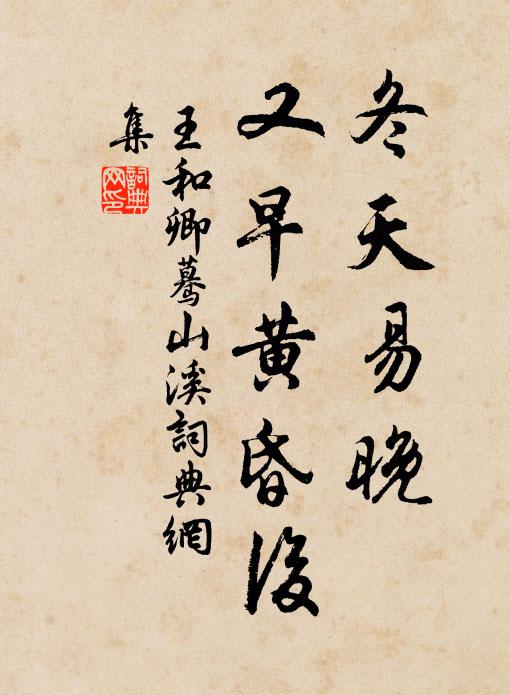 冬天易晚
又早黄昏後
王和卿蓦山溪詞典網
集
詞典
网印